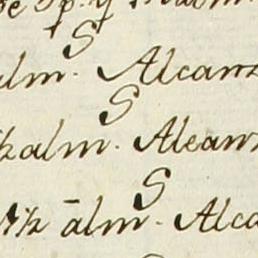 S
alm. Alcanz
S
½ alm. Alcanz
S
1½ alm. Alca